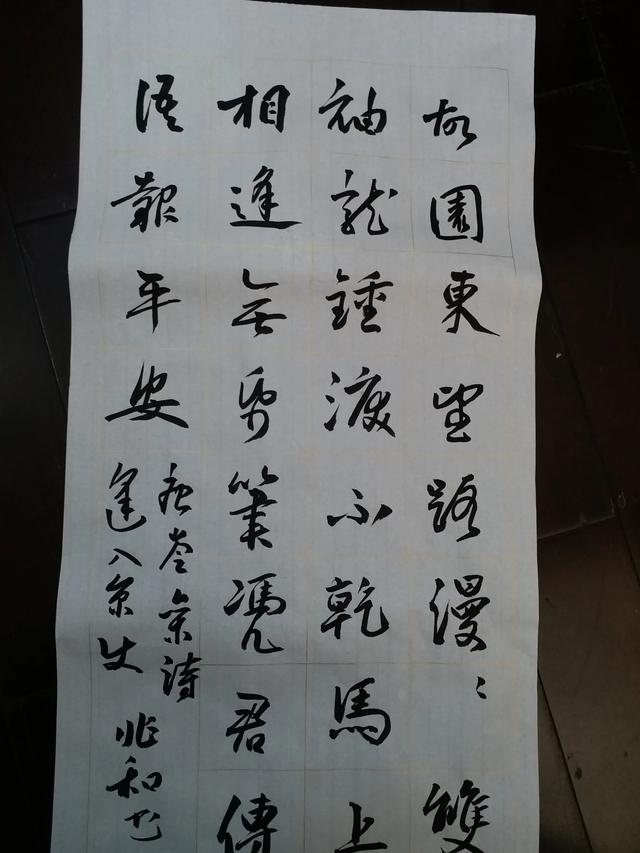 故園東望路漫〻雙
袖龍鍾淚不乾馬上
相逢無帋筆憑君傳
語報平安
唐岑參詩
逢入京使 兆和书